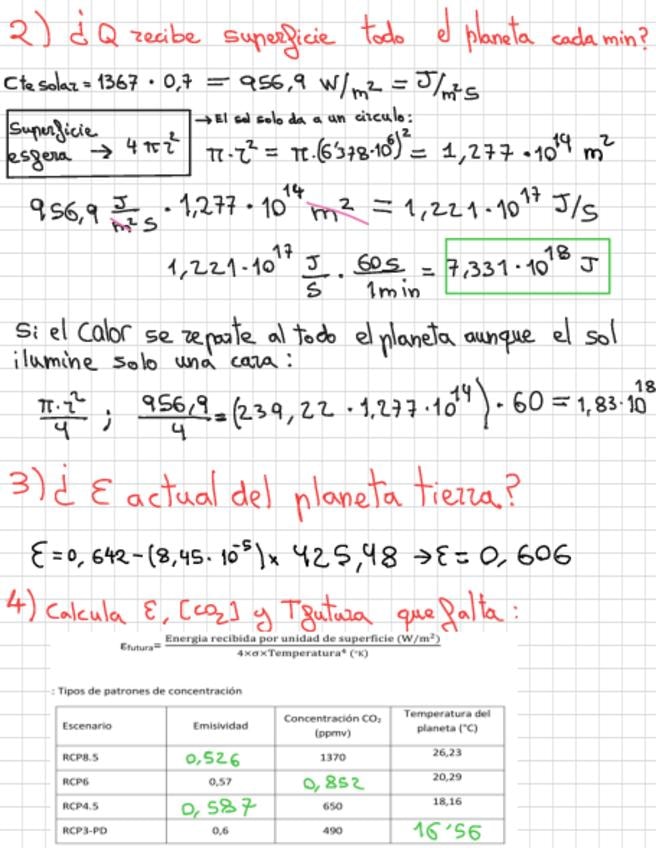 2) ¿Q recibe superficie todo el planeta cada min?
Cte solar = 1367 · 0,7 = 956,9 W/m² = J/m²s
Superficie esfera → 4πr²
→ El sol solo da a un circulo:
π·r² = π·(6'378·10⁶)² = 1,277·10¹⁴ m²
956,9 J/m²s · 1,277·10¹⁴ m² = 1,221·10¹⁷ J/s
1,221·10¹⁷ J/s · 60s/1min = 7,331·10¹⁸ J
Si el Calor se reparte al todo el planeta aunque el sol
ilumine solo una cara:
π·r²/4 ; 956,9/4 = (239,22 · 1,277·10¹⁴) · 60 = 1,83·10¹⁸
3) ¿ Ɛ actual del planeta tierra?
Ɛ = 0,642 - (8,45·10⁻⁵) x 425,48 → Ɛ = 0,606
4) Calcula Ɛ, [CO₂] y Tfutura que falta:
Ɛfutura= Energia recibida por unidad de superficie (W/m²) / 4×σ×Temperatura⁴ (°K)
: Tipos de patrones de concentración
Escenario Emisividad Concentración CO₂ (ppmv) Temperatura del planeta (°C)
RCP8.5 0,526 1370 26,23
RCP6 0,57 0,852 20,29
RCP4.5 0,587 650 18,16
RCP3-PD 0,6 490 16'56